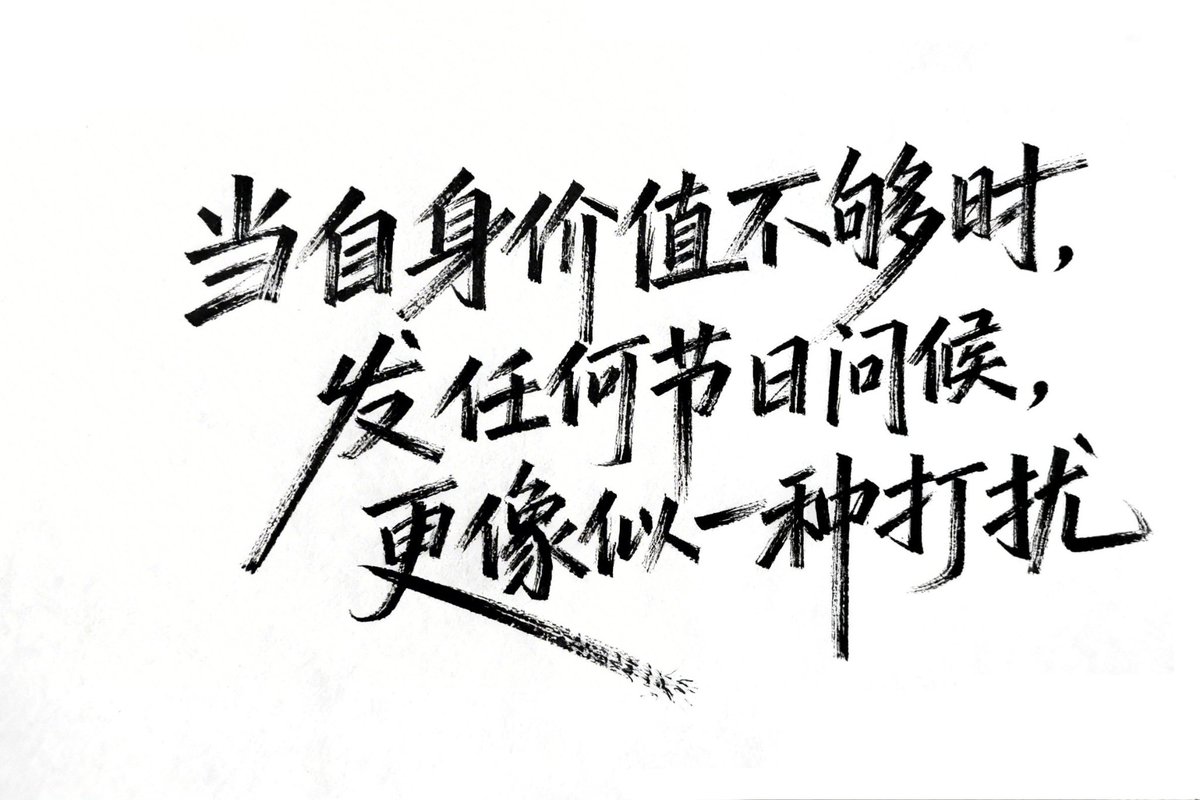 当自身价值不够时，
发任何节日问候，
更像似一种打扰